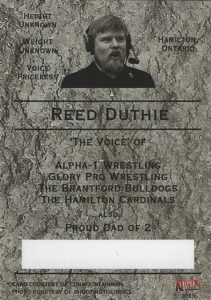 Height
Unknown
Weight
Unknown
Voice
Priceless
Hamilton,
Ontario
Reed Duthie
"The Voice" of
Alpha-1 Wrestling
Glory Pro Wrestling
The Brantford Bulldogs
The Hamilton Cardinals
also
Proud Dad of 2
Card courtesy of
Photo courtesy of
2025